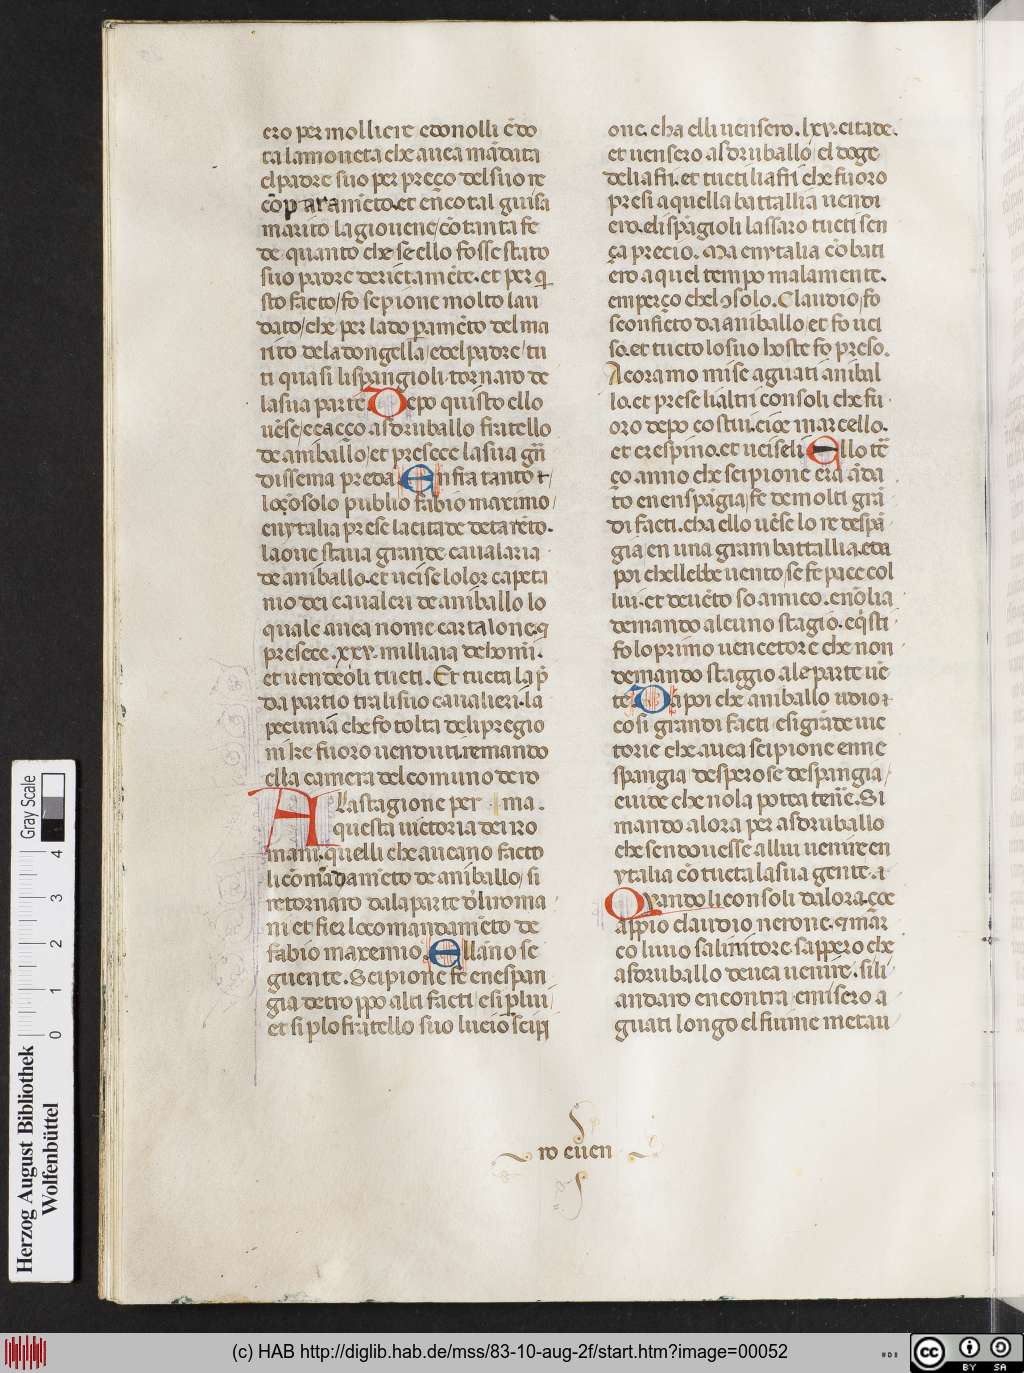 ero per mollieie edonolli ēdo
ta la moneta che auea mādata
el padre suo per preço del suo re
cōparamēto. et en cotal guisa
marito la giouene / cō tanta fe
de quanto che se ello fosse stato
suo padre derictamēte. et per q̄
sto facto / fo scipione molto lau
dato / che per lado pamēto del ma
rito de la dongella / e del padre / tu
ti quasi li spangioli tornaro de
la sua parte Depo quisto ello
uēse / e cacço asdruballo fratello
de aniballo / et presece la sua gñ
dissema preda. En fra tanto el
loçosolo publio fabio maximo
en ytalia prese la citade de tarēto.
la oue staua grande caualaria
de aniballo. et ucise lo lor capeta
nio dei caualeri de aniballo lo
quale auea nome cartalone. q
presece .xxv. milliaia de homī.
et uendeoli tucti. Et tucta la p̄
da partio tra li suo caualieri. la
pecunia che fo tolta de li pregio
ni / ke fuoro uenduti. remando
ella camera del comuno de ro
A la stagione per ma.
questa uictoria dei ro
mani. quelli che aueano facto
li comādamēto de aniballo / si
retornaro da la parte dli roma
ni et fier lo comandamēto de
fabio maxemio. Ell anno se
guente. Scipione fe en espan
gia de troppo alti facti / e si p lui /
et si p lo fratello suo lucio scipi
one. cha elli uensero .lxv. citade.
et uensero asdruballo / el doge
de li afri. et tucti li afri che fuoro
presi a quella battallia uendi
ero. e li spāgioli lassaro tucti sen
ça precio. Ma en ytalia cōbati
ero a quel tempo malamente.
emperço chel ꝯsolo. Claudio / fo
sconficto da aniballo / et fo uci
so. et tucto lo suo hoste fo preso.
Ac oramo mise aguati anibal
lo. et prese li altri consoli che fu
oro depo costui. cioe marcello.
et crespino. et uciseli. Ello tē
ço anno che scipione era ādā
to en enspāgia / fe de molti grā
di facti. cha ello uēse lo re despā
gia / en una gram battallia. e da
poi chell ebbe uento / se fe pace col
lui. et deuēto so amico. e nō lia
demando alcuno stagio. e q̄sti
fo lo primo uencetore che non
demando staggio a le parte uē
te Da poi che aniballo udio
cosi grandi facti e si grāde uic
torie che auea scipione enne
spangia desperose de spangia /
e uide che no la potea tenēe. Si
mando alora per asdruballo
che sen douesse a llui uenire en
ytalia cō tucta la sua gente.
Quando li consoli d alora. çoe
appio claudio nerone. e mār
co liuio salinatore sappero che
asdruballo deuea uenire. si li
andaro en contra / e misero a
guati longo el fiume metau
ro e uen
Herzog August Bibliothek
Wolfenbüttel
0 1 2 3 4
Gray Scale
(c) HAB http://diglib.hab.de/mss/83-10-aug-2f/start.htm?image=00052
HAB
cc BY SA